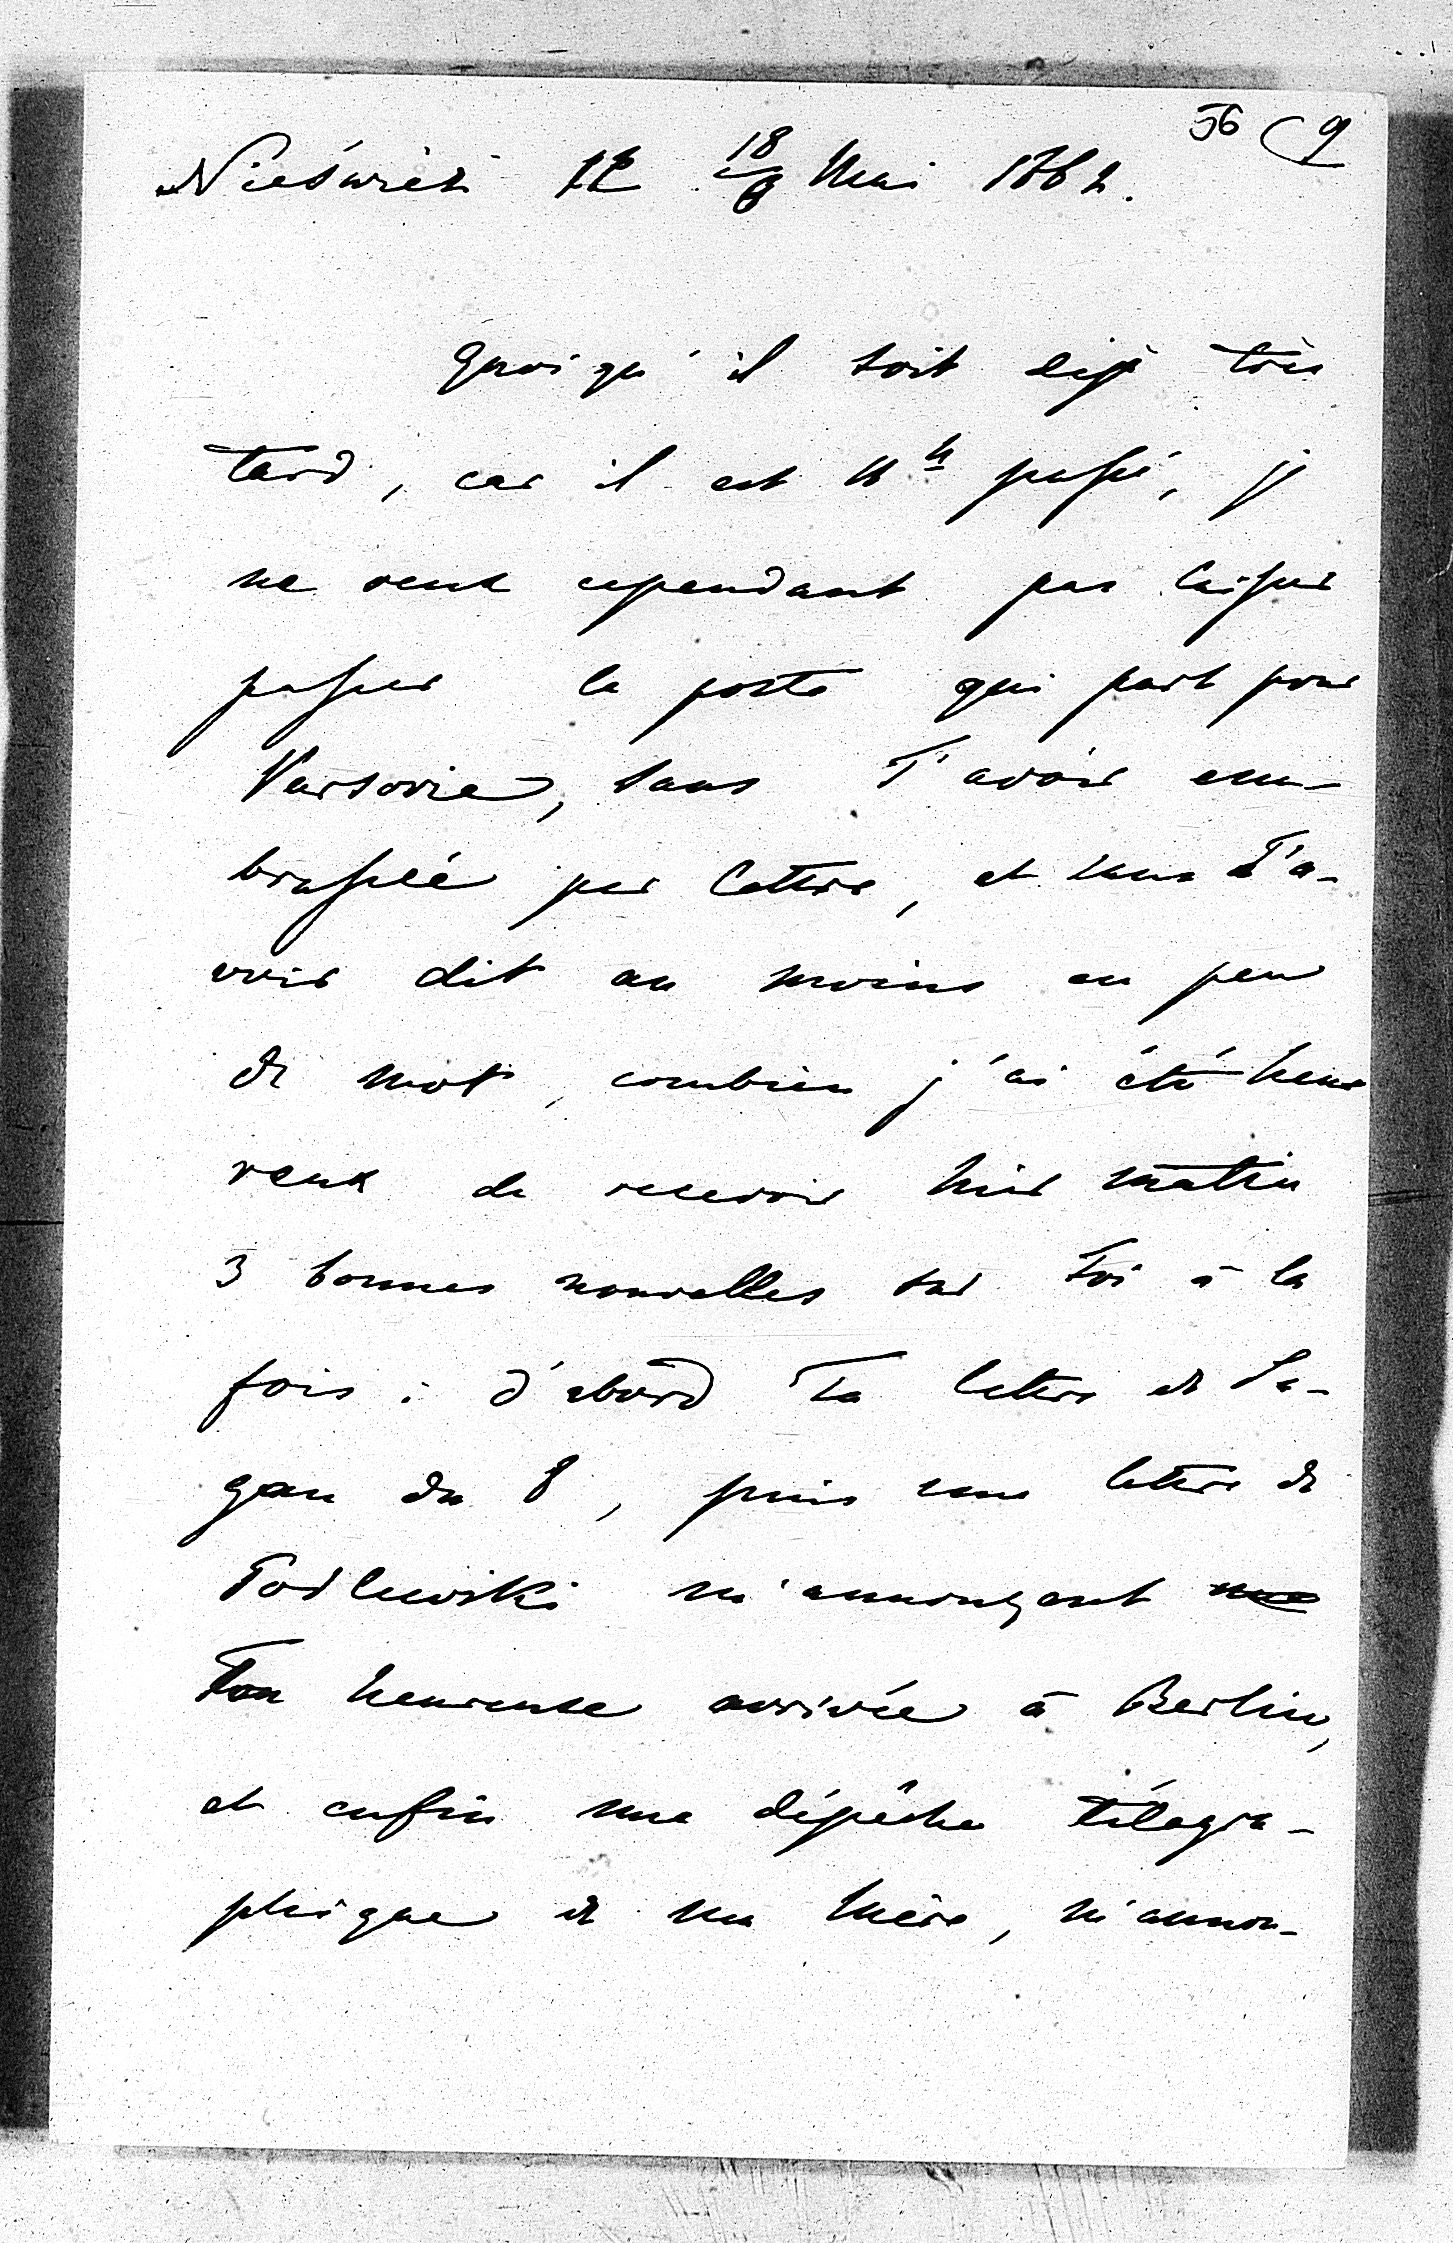 56 9
Nieśwież 18/6 Mai 1862.
Quoiqu'il soit déjà très
tard, car il est 11 h passé, je
ne veux cependant pas laisser
passer la poste qui part pour
Varsovie, sans T'avoir em-
brassée par lettre, et sans T'a-
voir dit au moins en peu
de mots, combien j'ai été heu
reux de recevoir hier matin
3 bonnes nouvelles sur Toi à la
fois : d'abord Ta lettre de Sa-
gan du 8, puis une lettre de
m'annonçant
Ton heureuse arrivée à Berlin,
et enfin une dépêche télégra-
phique de ma Mère, m'annon-